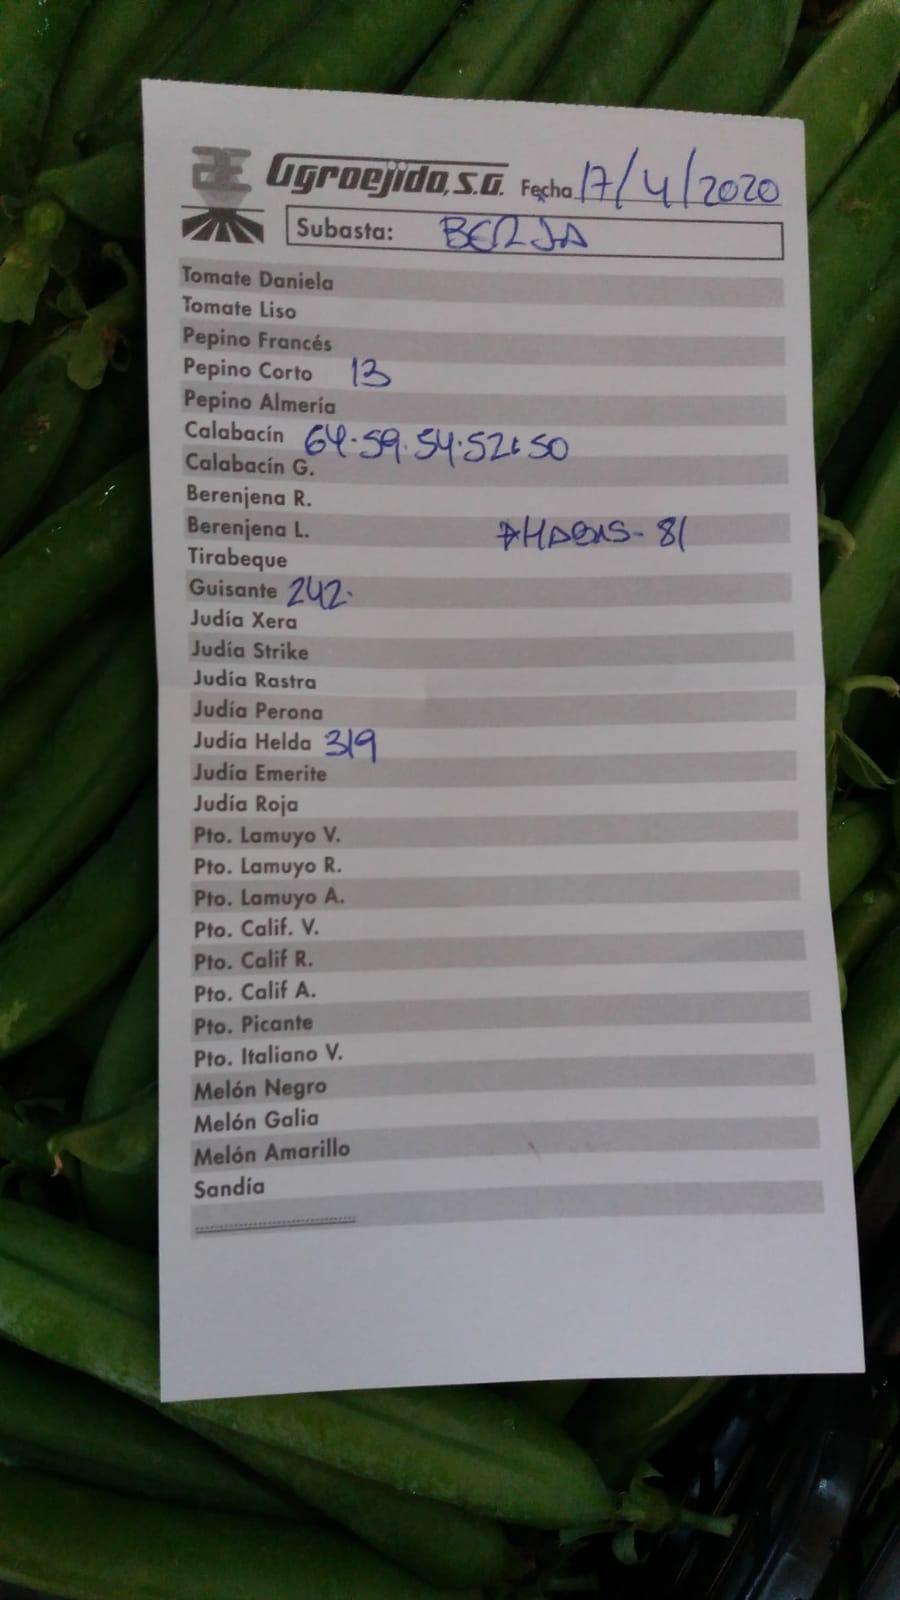 Agroejido, S.A. Fecha 17/4/2020
Subasta: BERJA
Tomate Daniela
Tomate Liso
Pepino Francés
Pepino Corto 13
Pepino Almería
Calabacín 64.59.54.52.50
Calabacín G.
Berenjena R.
Berenjena L. HABAS-81
Tirabeque
Guisante 242.
Judía Xera
Judía Strike
Judía Rastra
Judía Perona
Judía Helda 319
Judía Emerite
Judía Roja
Pto. Lamuyo V.
Pto. Lamuyo R.
Pto. Lamuyo A.
Pto. Calif. V.
Pto. Calif R.
Pto. Calif A.
Pto. Picante
Pto. Italiano V.
Melón Negro
Melón Galia
Melón Amarillo
Sandía